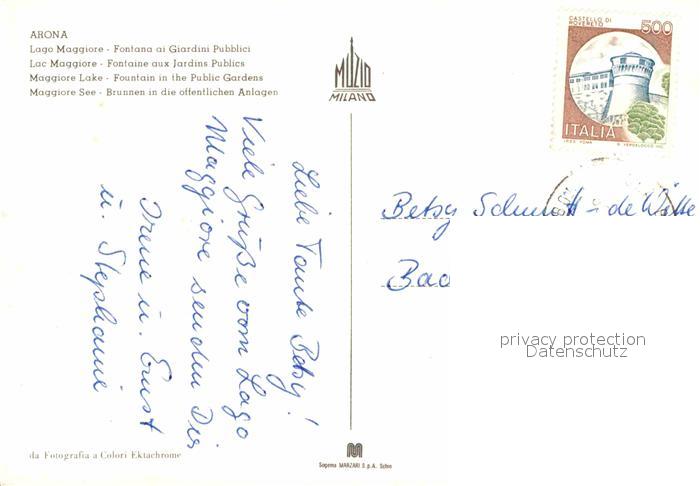 ARONA
Lago Maggiore - Fontana ai Giardini Pubblici
Lac Maggiore - Fontaine aux Jardins Publics
Maggiore Lake - Fountain in the Public Gardens
Maggiore See - Brunnen in die offentlichen Anlagen
MUZIO
MILANO
CASTELLO DI
ROVERETO
500
ITALIA
Liebe Tante Betsy!
Viele Grüße vom Lago
Maggiore senden Dir
Irene u. Ernst
u. Stephanie
Betsy Schmitt - de Witte
Bad
privacy protection
Datenschutz
da Fotografia a Colori Ektachrome
Sagema MARZARI S.p.A. Schio